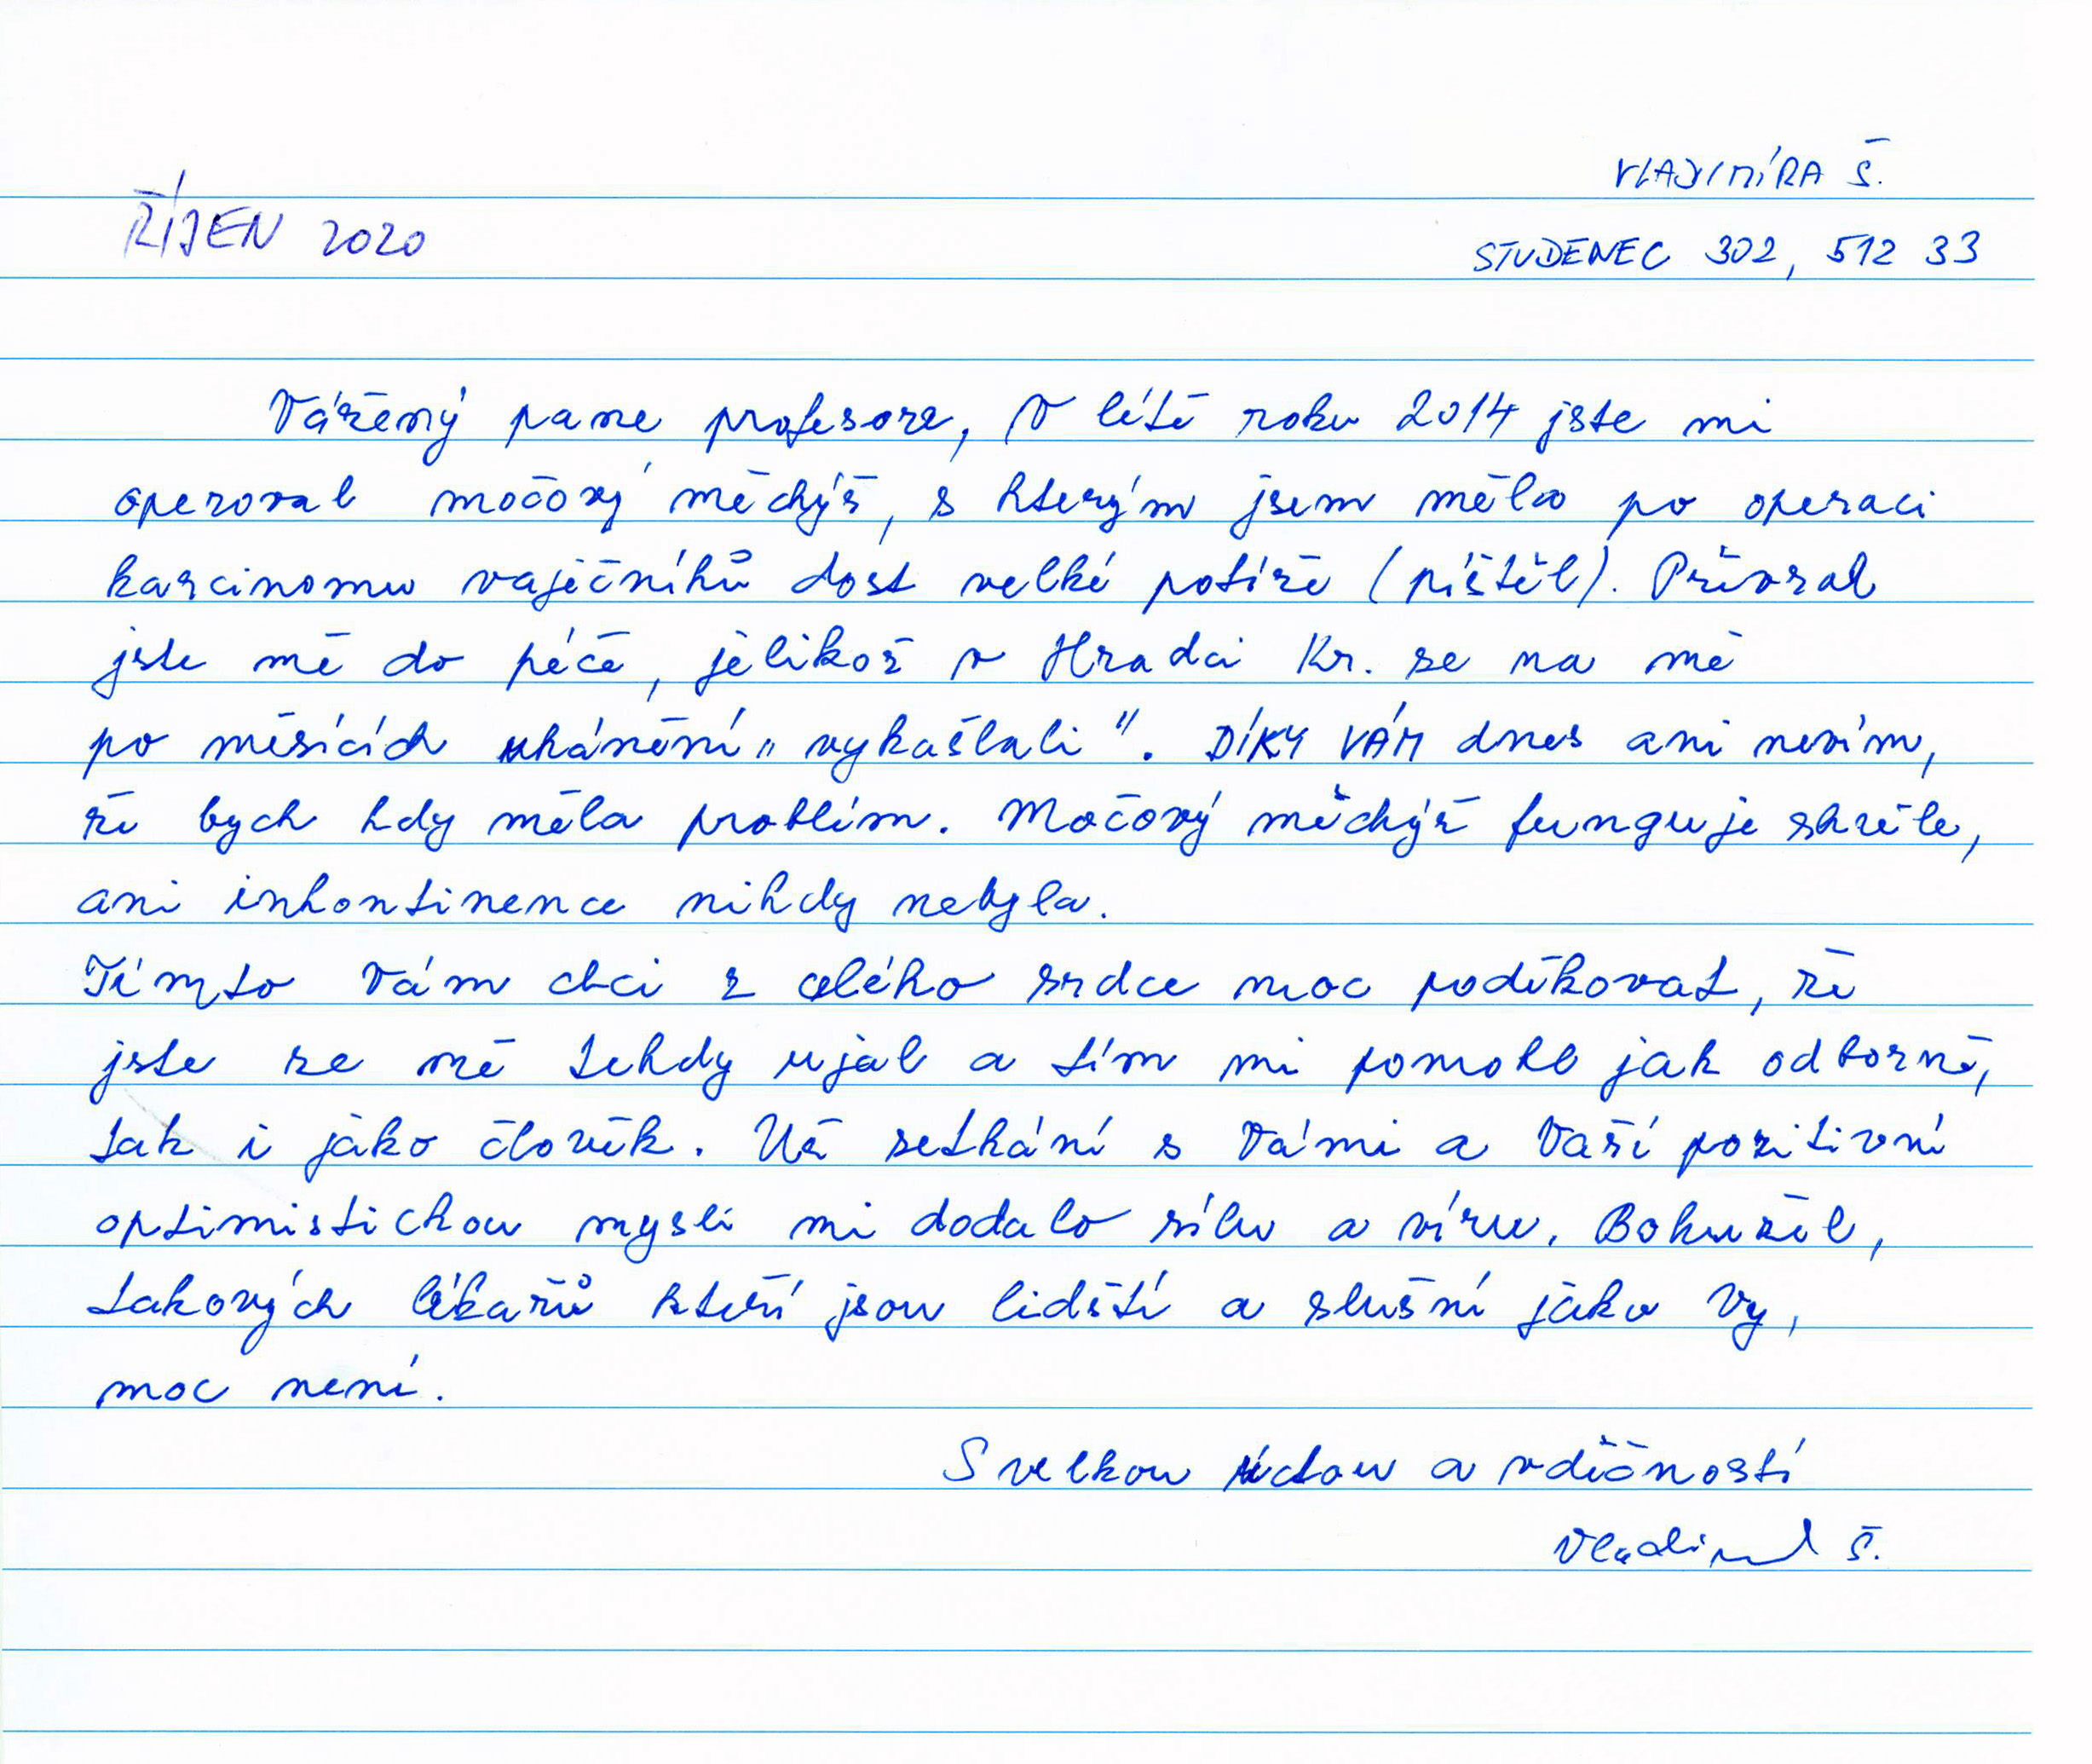 VLADIMÍRA Š.
ŘÍJEN 2020
STUDENEC 302, 512 33
Vážený pane profesore, V létě roku 2014 jste mi
operoval močový měchýř, s kterým jsem měla po operaci
karcinomu vaječníků dost velké potíže (píštěl). Převzal
jste mě do péče, jelikož v Hradci Kr. se na mě
po měsících uhánění „vykašlali". DÍKY VÁM dnes ani nevím,
že bych kdy měla problém. Močový měchýř funguje skvěle,
ani inkontinence nikdy nebyla.
Tímto Vám chci z celého srdce moc poděkovat, že
jste se mě tehdy ujal a tím mi pomohl jak odborně,
tak i jako člověk. Už setkání s Vámi a Vaší pozitivní
optimistickou myslí mi dodalo sílu a víru. Bohužel,
takových lékařů kteří jsou lidští a slušní jako Vy,
moc není.
S velkou úctou a vděčností
Vladimíra Š.